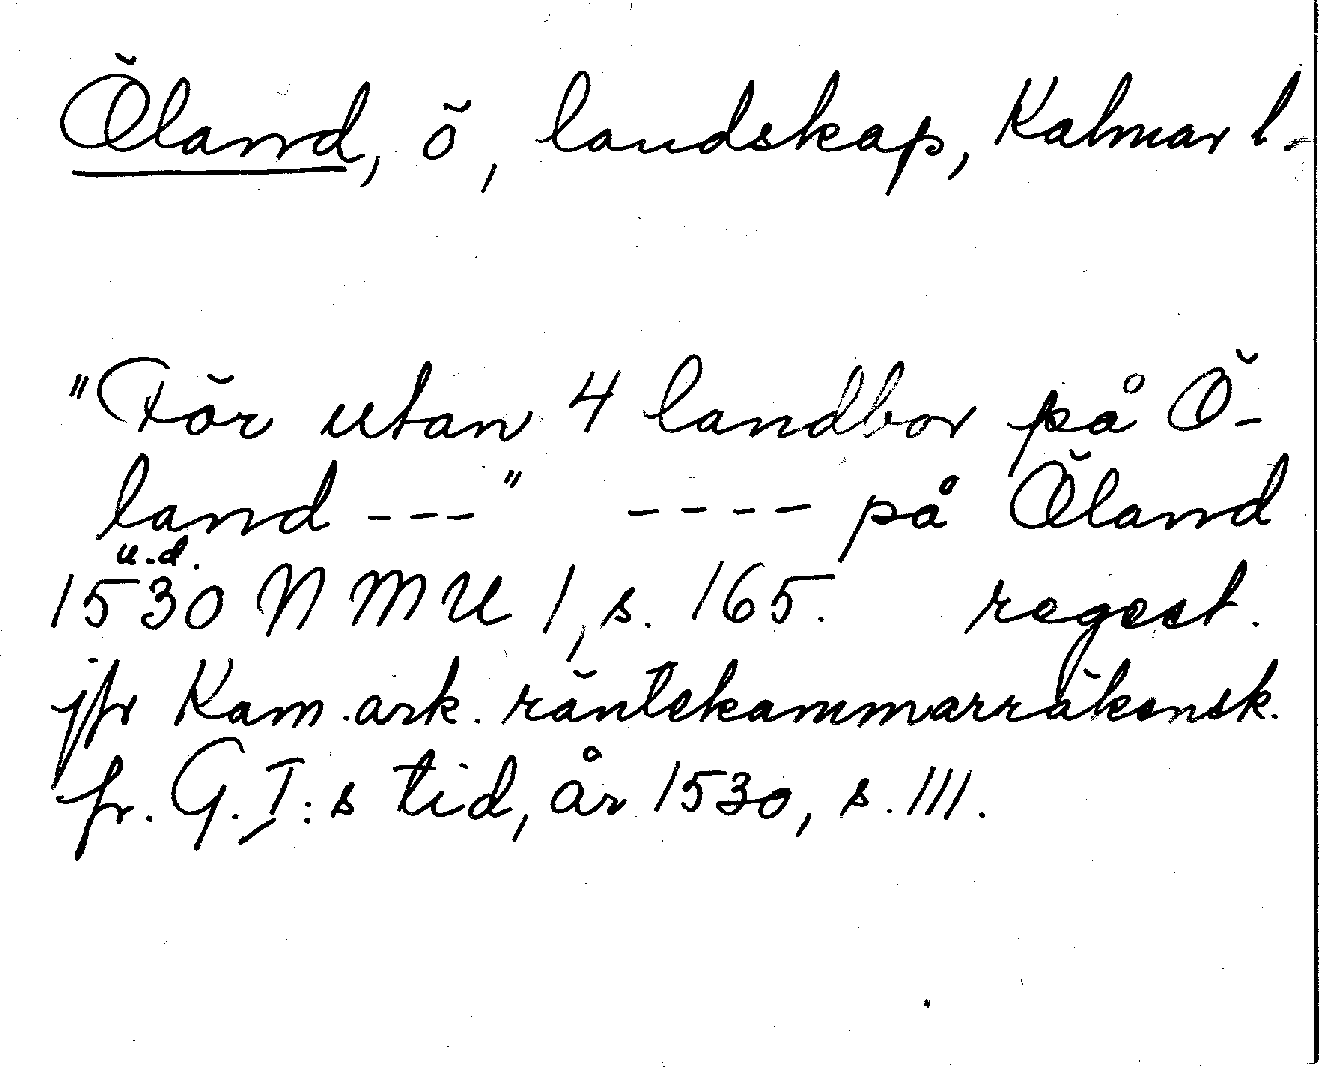 Öland, ö, landskap, Kalmar l.
"För utan 4 landbor på Ö-
land ---" ---- på Öland
u.d.
1530 NMU 1, s. 165. regest.
jfr Kam.ark. räntekammarräkensk.
fr. G. I:s tid, år 1530, s. 111.